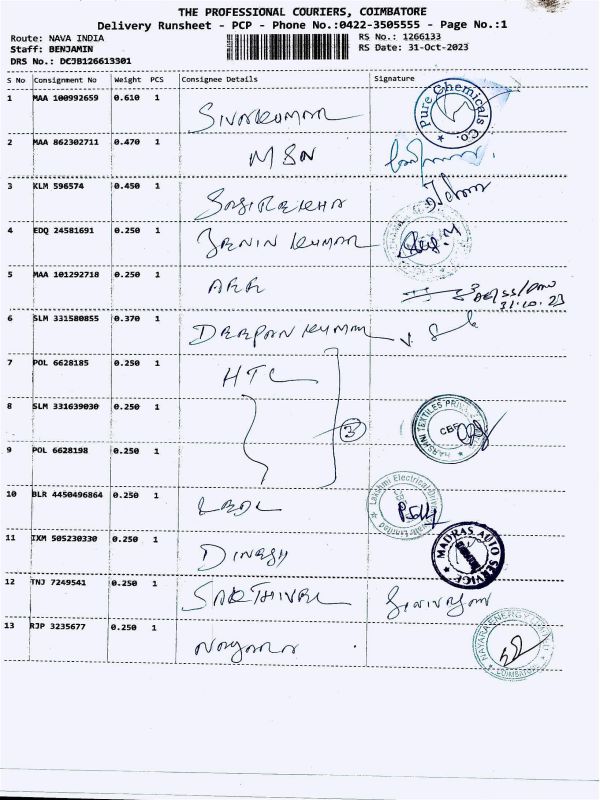 THE PROFESSIONAL COURIERS, COIMBATORE
Delivery Runsheet - PCP - Phone No.:0422-3505555 - Page No.:1
Route: NAVA INDIA
RS No.: 1266133
Staff: BENJAMIN
RS Date: 31-Oct-2023
DRS No.: DCJB126613301
S No Consignment No Weight PCS Consignee Details Signature
1 MAA 100992659 0.610 1 SIVAKUMAR Pure Chemicals Co.
2 MAA 862302711 0.470 1 MSN
3 KLM 596574 0.450 1 SASIREKHA
4 EDQ 24581691 0.250 1 JENIN KUMAR
5 MAA 101292718 0.250 1
31.10.23
6 SLM 331580855 0.370 1 DEEPAN KUMAR
7 POL 6628185 0.250 1 HTL
8 SLM 331639030 0.250 1 HARSHNI TEXTILES CBE
3
9 POL 6628198 0.250 1
10 BLR 4450496864 0.250 1 Lakshmi Electrical Limited
11 IXM 505230330 0.250 1 DINESH MADRAS AUTO SERVICE
12 TNJ 7249541 0.250 1 SAKTHIVEL
13 RJP 3235677 0.250 1 Nayara NAYARA ENERGY LIMITED COIMBATORE